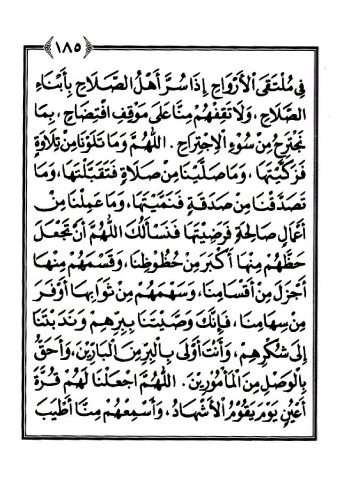 ١٨٥
فِي مُلْتَقَى الْأَرْوَاحِ إِذَا سُرَّ أَهْلُ الصَّلَاحِ بِأَبْنَاءِ
الصَّلَاحِ، وَلَا تَقِفْهُمْ مِنَّا عَلَى مَوْقِفِ افْتِضَاحٍ، بِمَا
نَجْتَرِحُ مِنْ سُوءِ الْاِجْتِرَاحِ. اللَّهُمَّ وَمَا تَلَوْنَا مِنْ تِلَاوَةٍ
فَزَكَّيْتَهَا، وَمَا صَلَّيْنَا مِنْ صَلَاةٍ فَتَقَبَّلْتَهَا، وَمَا
تَصَدَّقْنَا مِنْ صَدَقَةٍ فَنَمَّيْتَهَا، وَمَا عَمِلْنَا مِنْ
أَعْمَالٍ صَالِحَةٍ فَرَضِيتَهَا فَنَسْأَلُكَ اللَّهُمَّ أَنْ تَجْعَلَ
حَظَّهُمْ مِنْهَا أَكْبَرَ مِنْ حُظُوظِنَا، وَقَسْمَهُمْ مِنْهَا
أَجْزَلَ مِنْ أَقْسَامِنَا، وَسَهْمَهُمْ مِنْ ثَوَابِهَا أَوْفَرَ
مِنْ سِهَامِنَا، فَإِنَّكَ وَصَّيْتَنَا بِبِرِّهِمْ وَنَدَبْتَنَا
إِلَى شُكْرِهِمْ، وَأَنْتَ أَوْلَى بِالْبِرِّ مِنَ الْبَارِّينَ، وَأَحَقُّ
بِالْوَصْلِ مِنَ الْمَأْمُورِينَ. اللَّهُمَّ اجْعَلْنَا لَهُمْ قُرَّةَ
أَعْيُنٍ يَوْمَ يَقُومُ الْأَشْهَادُ، وَأَسْمِعْهُمْ مِنَّا أَطْيَبَ